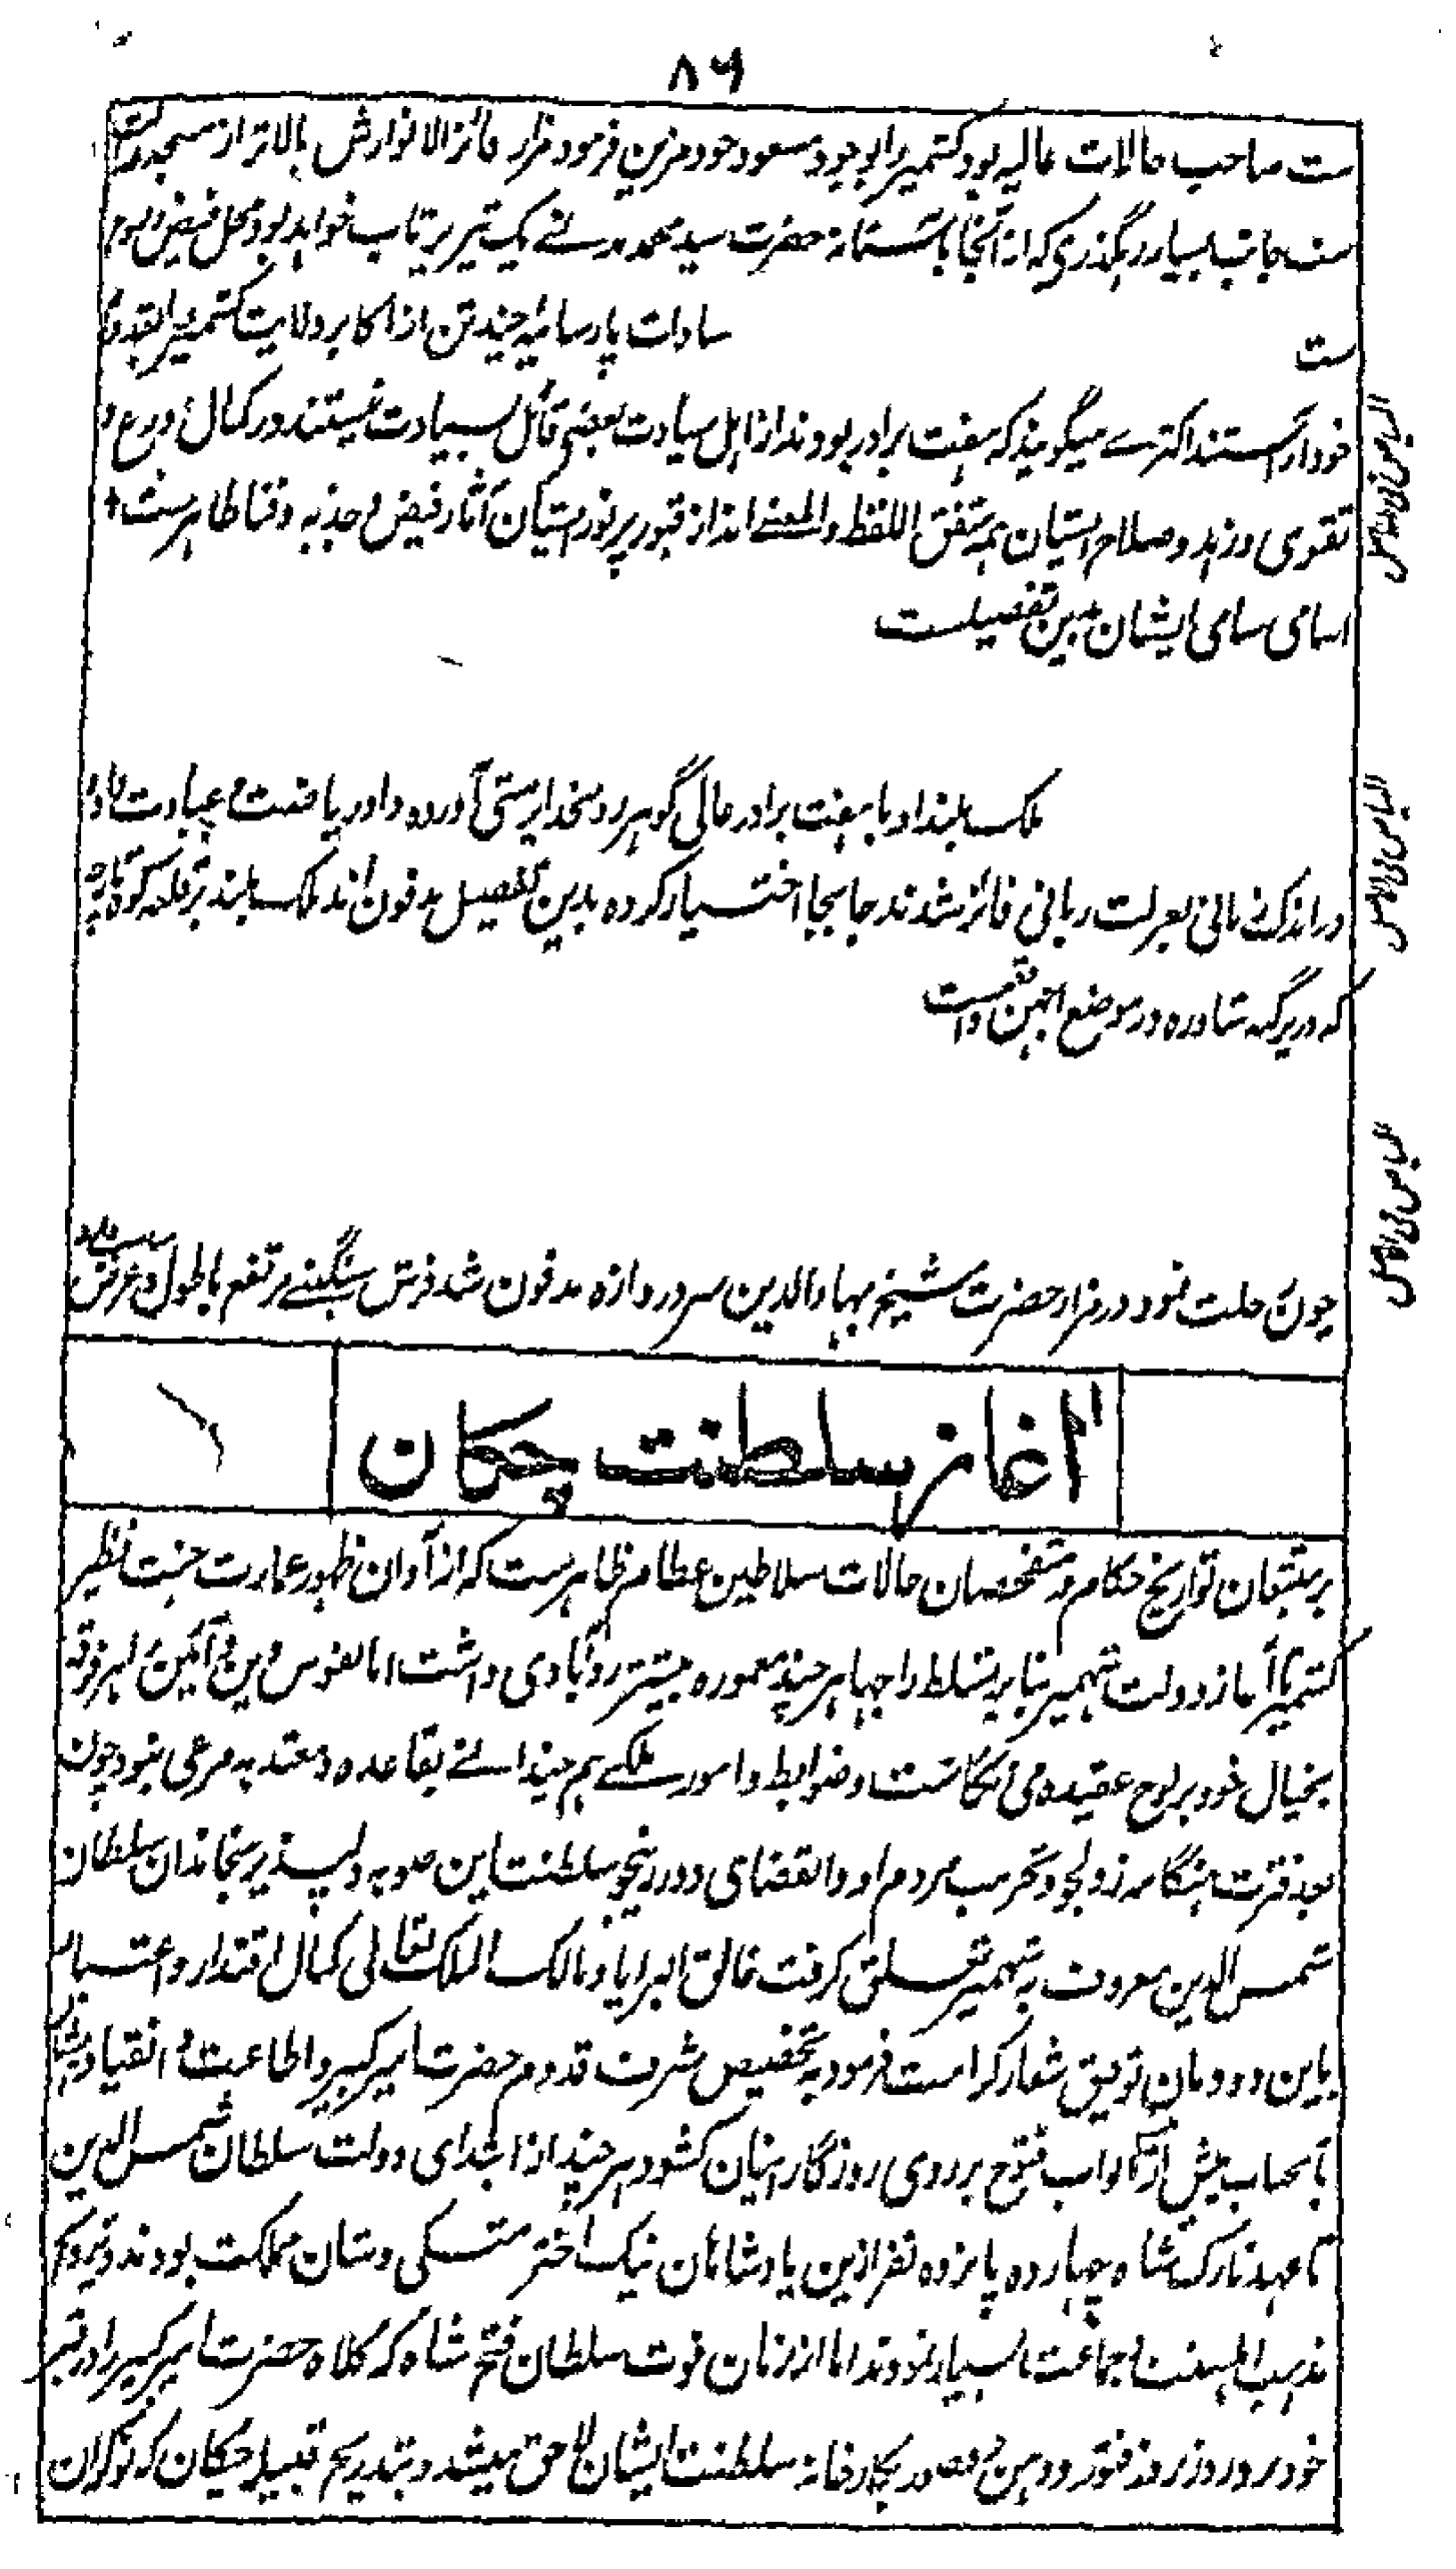 ۸۶
ست صاحب حالات عالیه بود کشمیر را بوجود مسعود خود مزین فرمود مزار فائز الانوارش بالاتر از مسجد
ست جانب یسار رهگذری که از آنجا باستانه حضرت سید محمد مدنی یک تیر پرتاب خواهد بود محل فیض
ست سادات پارسائیه چند تن از اکابر ولایت کشمیر
خود آراستند اکثرے میگویند که هفت برادر بودند از اهل سیادت بعضی قائل بسیادت نیستند در کمال ورع و
تقوی و زهد و صلاح ایشان همه متفق اللفظ والمعنے اند از قبور پر نور ایشان آثار فیض و جذبه و فنا ظاهرست
اسامی سامی ایشان بدین تفصیلست
البیاض فی الاصل
ملک بلند او با هفت برادر عالی گوهر رو بخدا پرستی آورده داد ریاضت و عبادت داده
در اندک زمانی بعزلت ربانی فائز شدند جابجا اختیار کرده بدین تفصیل مدفون اند ملک بلند بر قله کوه
که در پرگنه شاوره در موضع واقعست
البیاض فی الاصل
البیاض فی الاصل
چون رحلت نمود در مزار حضرت شیخ بهاء الدین سر دروازه مدفون شد فرش سنگینے مرتفع با طول و عرض
آغاز سلطنت چکان
بر متتبعان تواریخ حکام و متفحصان حالات سلاطین عظام ظاهرست که از آوان ظهور عمارت جنت نظیر
کشمیر تا آغاز دولت شهمیر بنا بر تسلط راجها هر چند معموره بیشتر رو بآبادی داشت اما نقوش دین و آئین هر فرقه
بخیال خود بر لوح عقیده می نگاشت و ضوابط و امور ملکے هم چندانے بقاعده معتد به مرعی نبود چون
بعد فترت هنگامه زولجو و تخریب مردم او و انقضای دور رنجو سلطنت این صوبه دلپذیر بخاندان سلطان
شمس الدین معروف به شهمیر تعلق گرفت خالق البرایا و مالک الملک تعالی کمال اقتدار و اعتبار
باین دودمان توفیق شعار کرامت فرمود به تخصیص شرف قدوم حضرت امیر کبیر و اطاعت و انقیاد
بآنجناب بیش از ابواب فتوح بر روی روزگار اینان کشود هر چند از ابتدای دولت سلطان شمس الدین
تا عهد نازک شاه چهارده پانزده نفر ازین پادشاهان نیک اختر متکی وستان مملکت بودند و ترویج
مذهب اهلسنت و جماعت بسیار نمودند اما از زمان فوت سلطان فتح شاه که کلاه حضرت امیر کبیر را در قبر
خود برد روز بروز فتور و وهن و قصور بکارخانه سلطنت ایشان لاحق میشد و بتدریج قبیله چکان که نوکران